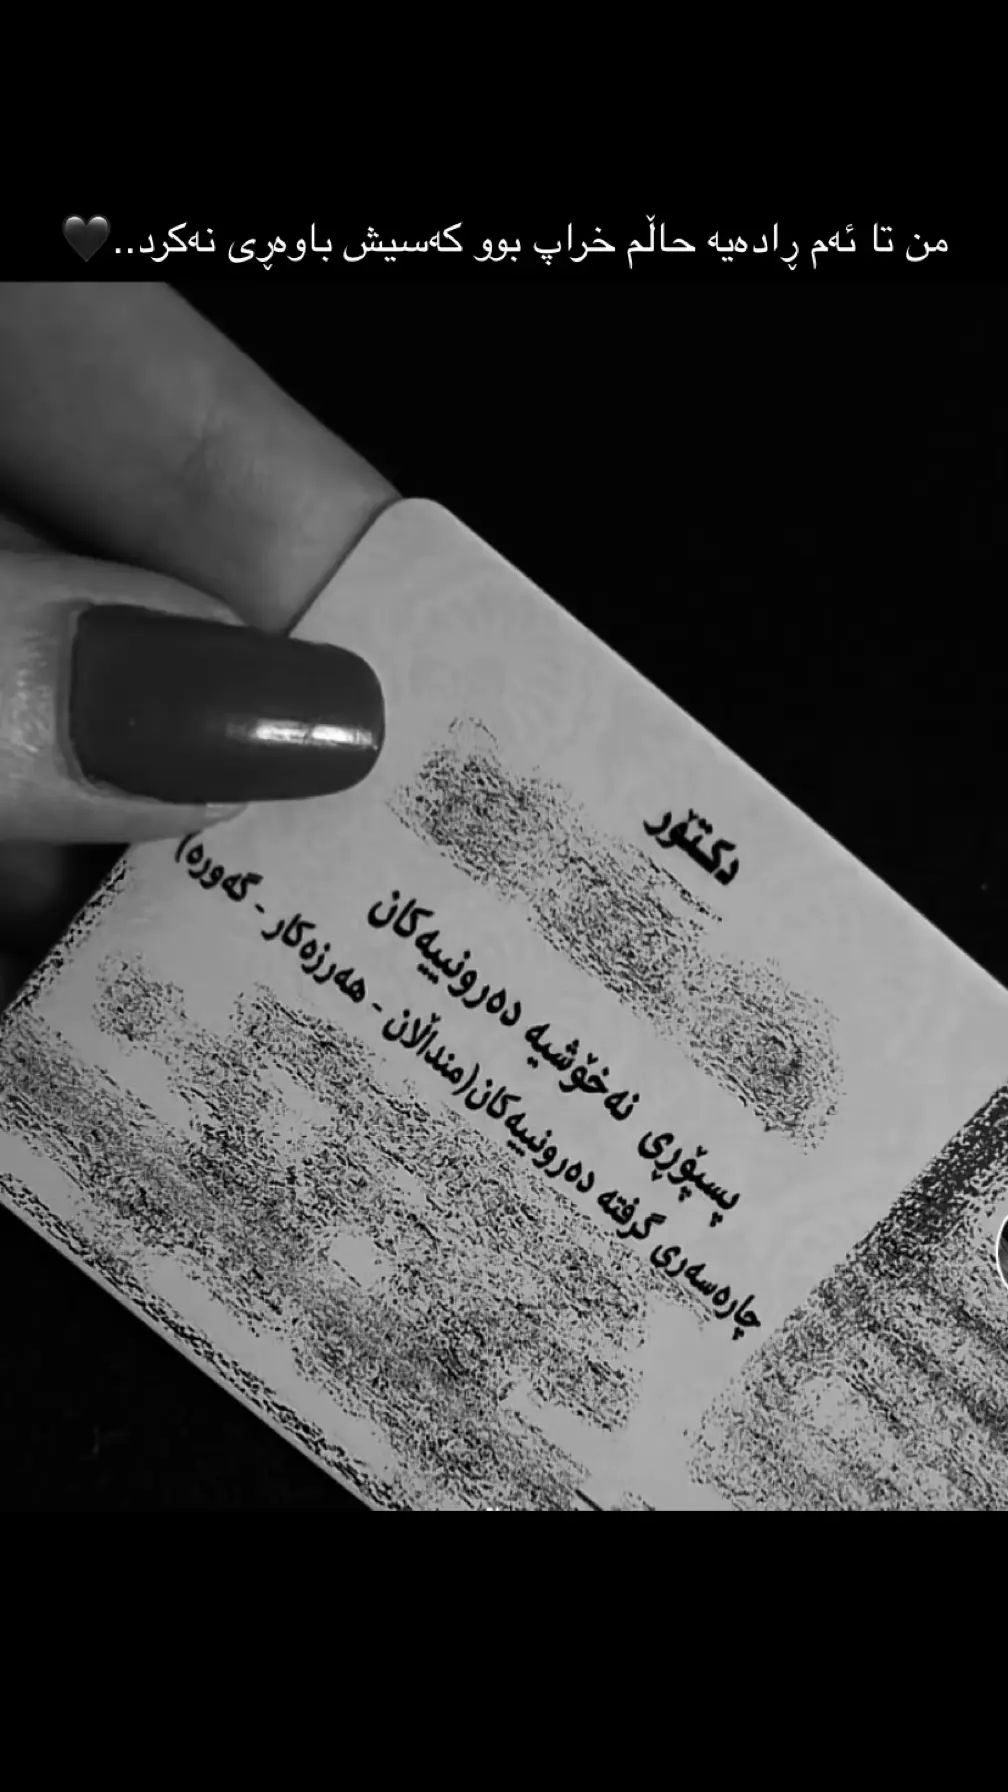 من تا ئەم ڕادەیە حاڵم خراپ بوو کەسیش باوەڕی نەکرد..🖤
دکتۆر
پسپۆڕی نەخۆشیە دەروونییەکان
چارەسەری گرفتە دەروونییەکان(منداڵان - هەرزەکار - گەورە)